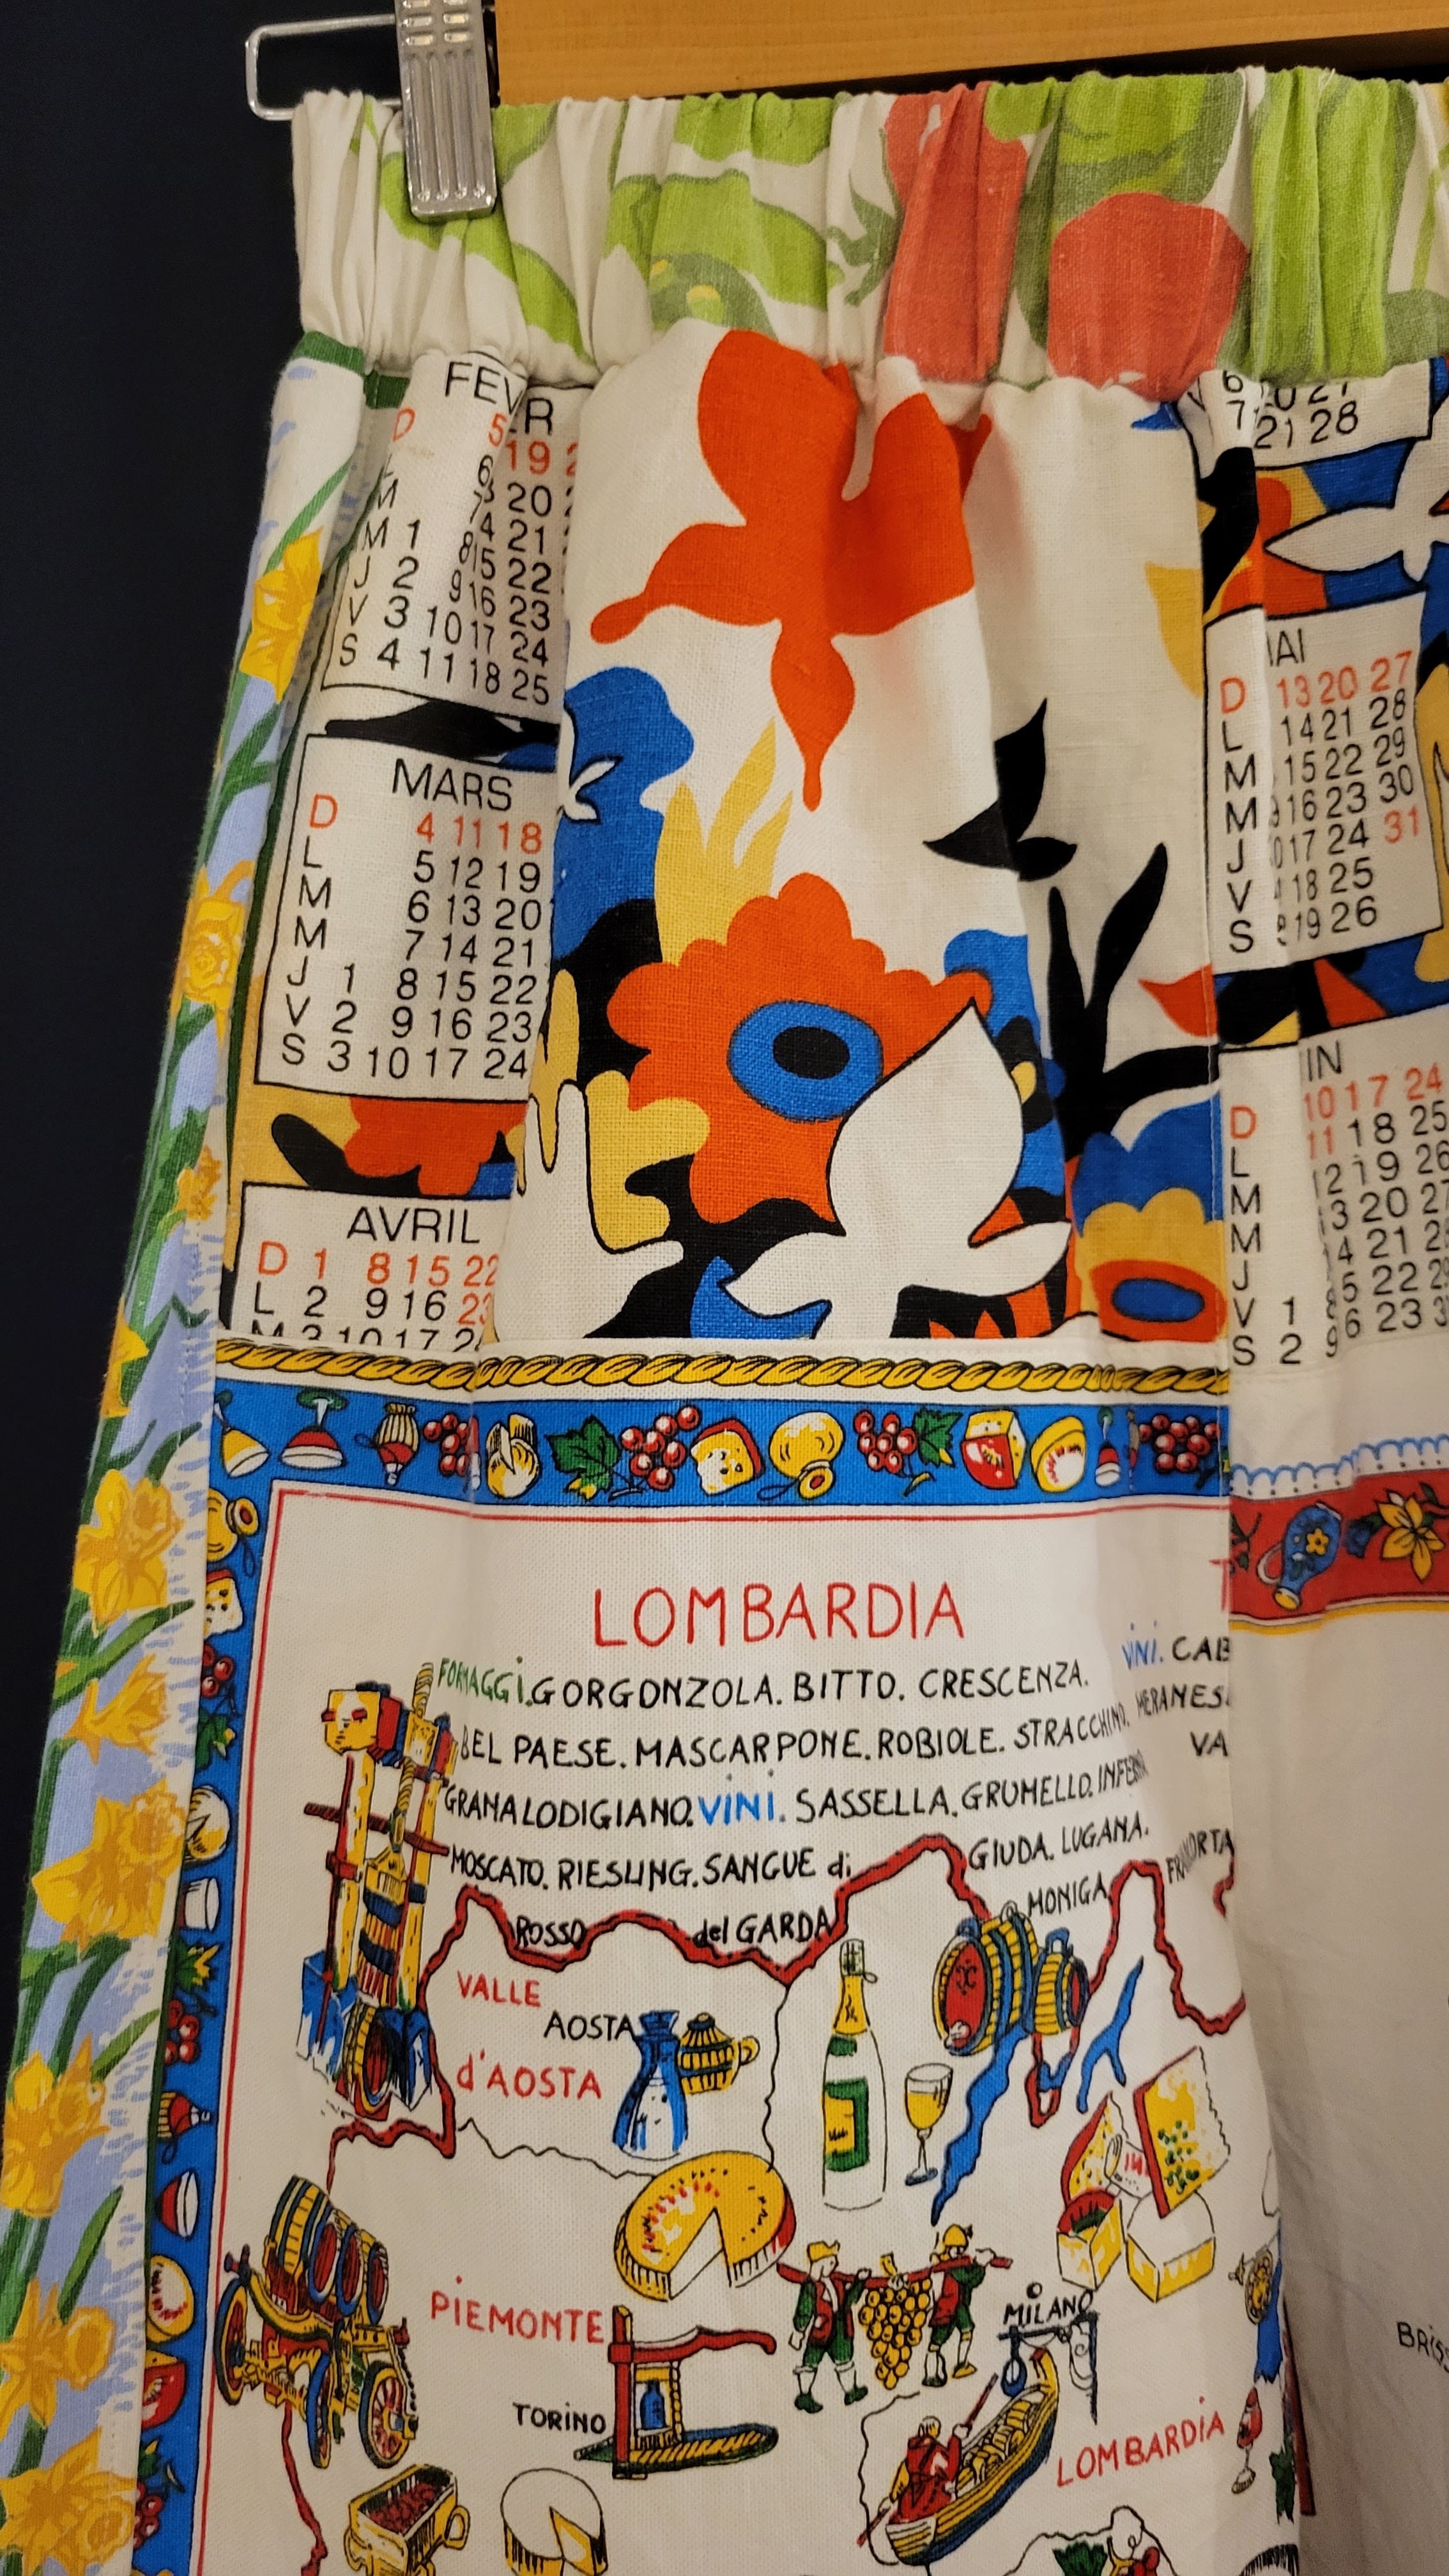 FEV R
D 5 19
6 20
M 7 21
M 1 8 15 22
J 2 9 16 23
V 3 10 17 24
S 4 11 18 25
MARS
D 4 11 18
L 5 12 19
M 6 13 20
M 7 14 21
J 1 8 15 22
V 2 9 16 23
S 3 10 17 24
AVRIL
D 1 8 15 22
L 2 9 16 23
M 3 10 17
7 21 28
AI
D 13 20 27
L 14 21 28
M 15 22 29
M 16 23 30
J 17 24 31
V 18 25
S 19 26
IN
D 10 17 24
L 11 18 25
M 12 19 26
M 13 20
J 14 21
V 1 22
S 2 9 23
LOMBARDIA
FORMAGGI. GORGONZOLA. BITTO. CRESCENZA.
BEL PAESE. MASCARPONE. ROBIOLE. STRACCHINO.
GRANALODIGIANO. VINI. SASSELLA. GRUMELLO. INFERNO
MOSCATO. RIESLING. SANGUE di GIUDA. LUGANA.
ROSSO del GARDA MONIGA
VINI. CAB
MERANES
VA
VALLE
d'AOSTA
AOSTA
PIEMONTE
TORINO
MILANO
LOMBARDIA
BRISS